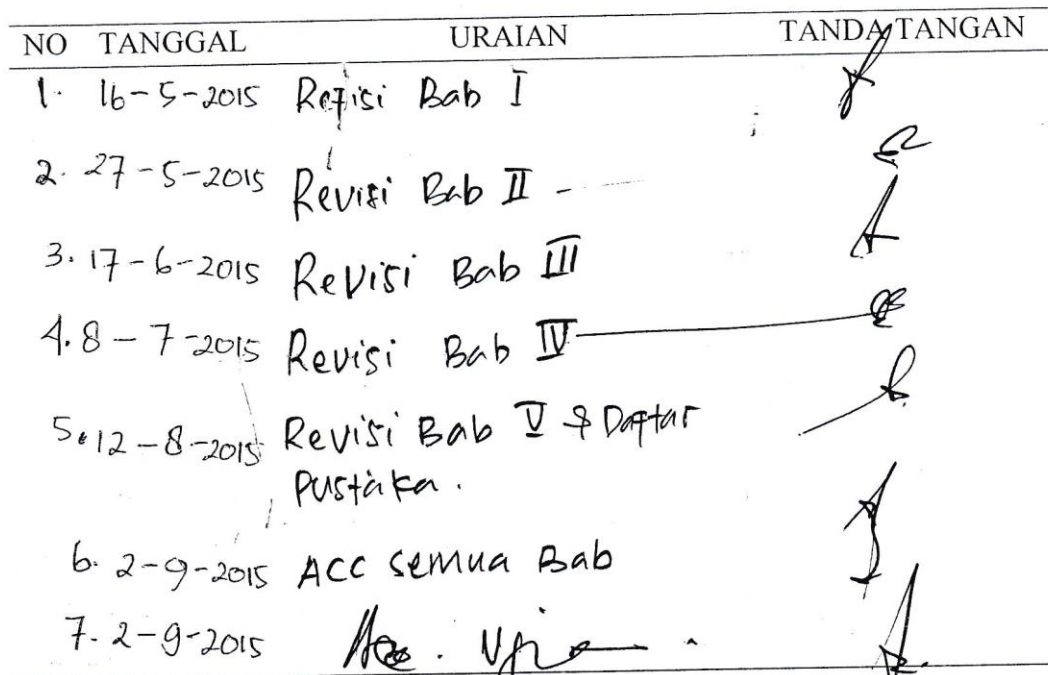 NO TANGGAL URAIAN TANDA TANGAN
1. 16-5-2015 Refisi Bab I
2. 27-5-2015 Revisi Bab II
3. 17-6-2015 Revisi Bab III
4. 8-7-2015 Revisi Bab IV
5. 12-8-2015 Revisi Bab V & Daftar
Pustaka.
6. 2-9-2015 ACC semua Bab
7. 2-9-2015 Acc. Ujian